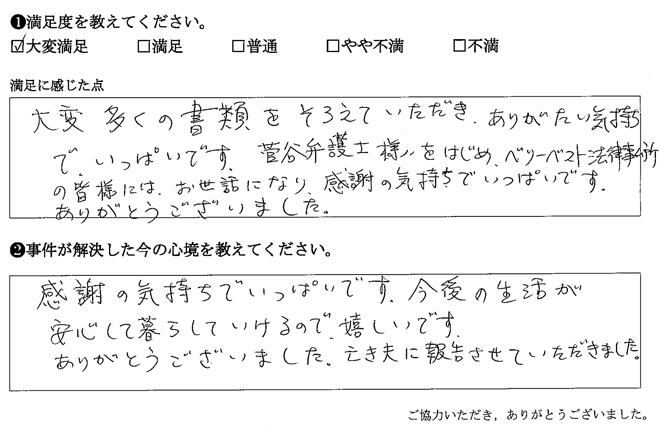 ❶満足度を教えてください。
☑大変満足 □満足 □普通 □やや不満 □不満
満足に感じた点
大変多くの書類をそろえていただき、ありがたい気持ち
で、いっぱいです。菅谷弁護士様をはじめ、ベリーベスト法律事務所
の皆様には、お世話になり、感謝の気持ちでいっぱいです。
ありがとうございました。
❷事件が解決した今の心境を教えてください。
感謝の気持ちでいっぱいです。今後の生活が
安心して暮らしていけるので、嬉しいです。
ありがとうございました。亡き夫に報告させていただきました。
ご協力いただき，ありがとうございました。